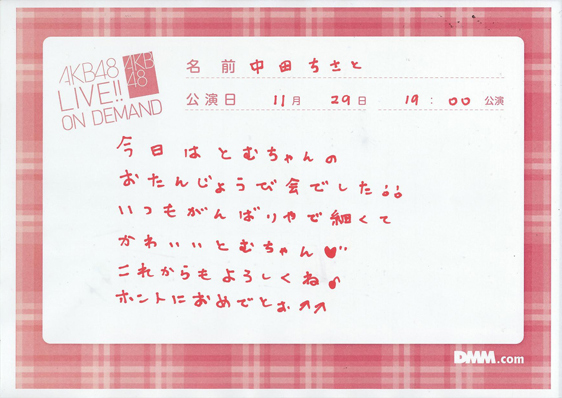 AKB48
LIVE!!
ON DEMAND
AKB
48
名前 中田ちさと
公演日 11月 29日 19:00 公演
今日はとむちゃんの
おたんじょうび会でした!!
いつもがんばりやで細くて
かわいいとむちゃん♥
これからもよろしくね♪
ホントにおめでとむ↗↗
DMM.com